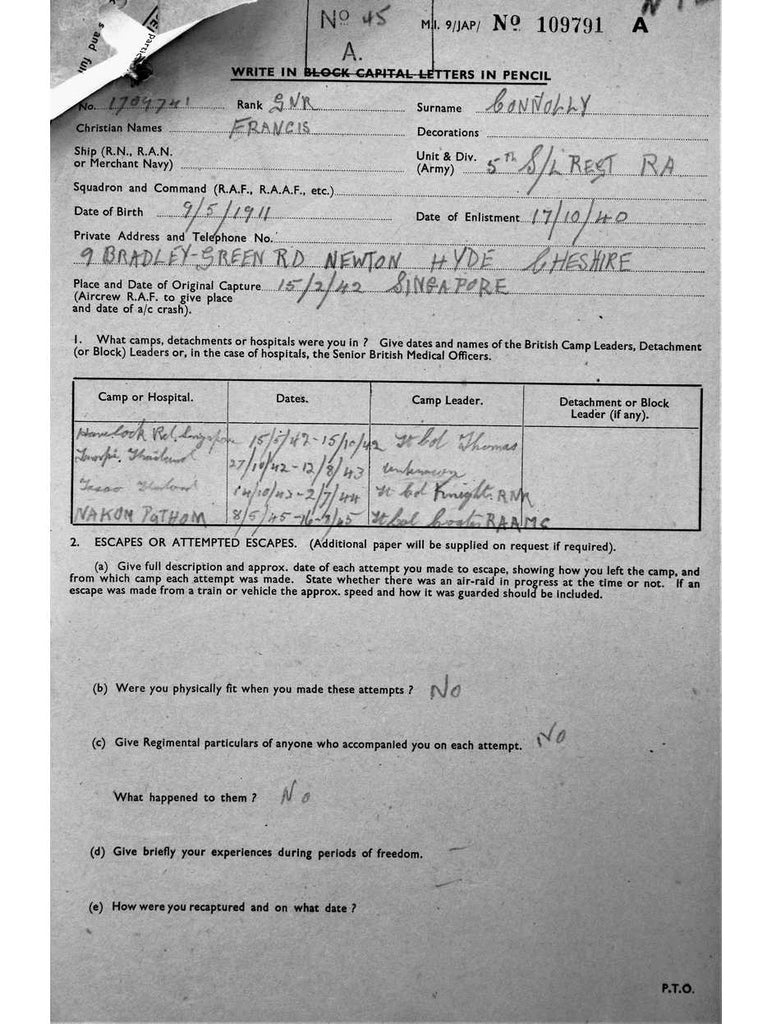 No 45 M.I. 9/JAP/ No 109791 A
A.
WRITE IN BLOCK CAPITAL LETTERS IN PENCIL
No. 1709741 Rank GNR Surname CONNOLLY
Christian Names FRANCIS Decorations
Ship (R.N., R.A.N. or Merchant Navy) Unit & Div. (Army) 5TH S/L REGT RA
Squadron and Command (R.A.F., R.A.A.F., etc.)
Date of Birth 9/5/1911 Date of Enlistment 17/10/40
Private Address and Telephone No.
9 BRADLEY-GREEN RD NEWTON HYDE CHESHIRE
Place and Date of Original Capture 15/2/42 SINGAPORE
(Aircrew R.A.F. to give place
and date of a/c crash).
1. What camps, detachments or hospitals were you in ? Give dates and names of the British Camp Leaders, Detachment
(or Block) Leaders or, in the case of hospitals, the Senior British Medical Officers.
Camp or Hospital. Dates. Camp Leader. Detachment or Block Leader (if any).
Havelock Rd. Singapore 15/5/42-15/10/42 Lt Col Thomas
Thailand 27/10/42-12/8/43 unknown
Thailand 14/10/43-2/7/44 Lt Col Knights RNR
NAKOM PATHOM 8/5/45-16-7/45 Lt Col Coates RAAMC
2. ESCAPES OR ATTEMPTED ESCAPES. (Additional paper will be supplied on request if required).
(a) Give full description and approx. date of each attempt you made to escape, showing how you left the camp, and
from which camp each attempt was made. State whether there was an air-raid in progress at the time or not. If an
escape was made from a train or vehicle the approx. speed and how it was guarded should be included.
(b) Were you physically fit when you made these attempts ? No
(c) Give Regimental particulars of anyone who accompanied you on each attempt. No
What happened to them ? No
(d) Give briefly your experiences during periods of freedom. —
(e) How were you recaptured and on what date ?
P.T.O.